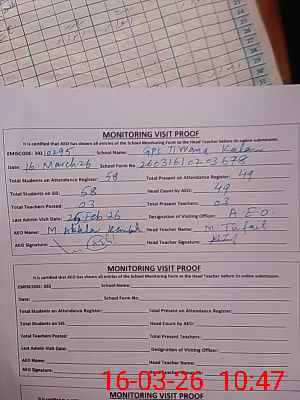 MONITORING VISIT PROOF
It is certified that AEO has shown all entries of the School Monitoring Form to the Head Teacher before its online submission.
EMISCODE: 382 10295 School Name: GPS Tiwana Kalan
Date: 16 March 26 School Form No. 2603161020 3678
Total Students on Attendance Register: 58 Total Present on Attendance Register: 49
Total Students on SIS: 58 Head Count by AEO: 49
Total Teachers Posted: 03 Total Present Teachers: 03
Last Admin Visit Date: 26 Feb 26 Designation of Visiting Officer: A.E.O.
AEO Name: M. Head Teacher Name: M Tufail
AEO Signature: Head Teacher Signature:
MONITORING VISIT PROOF
It is certified that AEO has shown all entries of the School Monitoring Form to the Head Teacher before its online submission.
EMISCODE: 382 School Name:
Date: School Form No.
Total Students on Attendance Register: Total Present on Attendance Register:
Total Students on SIS: Head Count by AEO:
Total Teachers Posted: Total Present Teachers:
Last Admin Visit Date: Designation of Visiting Officer:
AEO Name: Head Teacher Name:
AEO Signature: Head Teacher Signature:
MONITORING VISIT PROOF
16-03-26 10:47